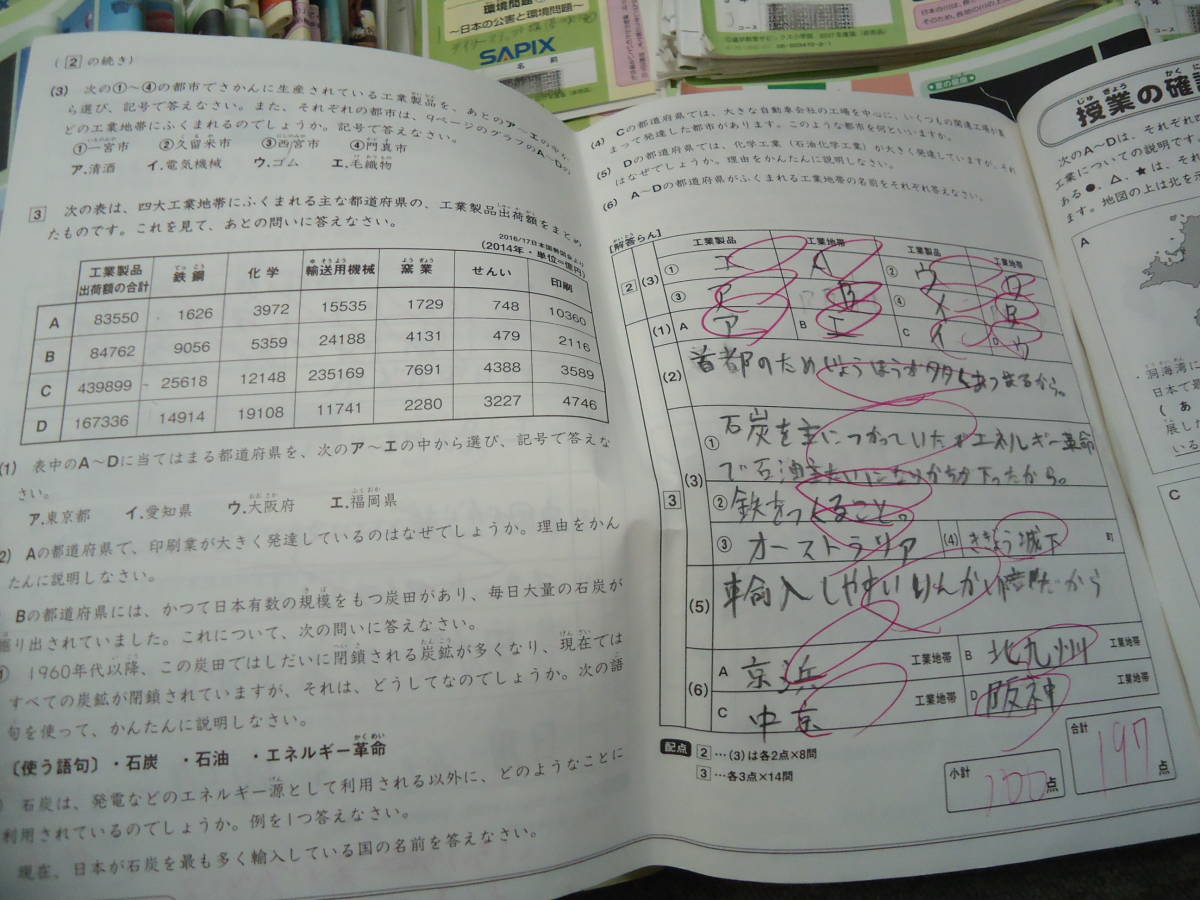 環境問題①
～日本の公害と環境問題～
SAPIX
名前
コース
（2の続き）
(3) 次の①～④の都市でさかんに生産されている工業製品を、あとのア～エの中か
ら選び、記号で答えなさい。また、それぞれの都市は、9ページのグラフのA～Dの
どの工業地帯にふくまれるのでしょうか。記号で答えなさい。
①一宮市 ②久留米市 ③西宮市 ④門真市
ア.清酒 イ.電気機械 ウ.ゴム エ.毛織物
3 次の表は、四大工業地帯にふくまれる主な都道府県の、工業製品出荷額をまとめ
たものです。これを見て、あとの問いに答えなさい。
2016/17日本国勢図会より
（2014年・単位=億円）
工業製品出荷額の合計 鉄鋼 化学 輸送用機械 窯業 せんい 印刷
A 83550 1626 3972 15535 1729 748 10360
B 84762 9056 5359 24188 4131 479 2116
C 439899 25618 12148 235169 7691 4388 3589
D 167336 14914 19108 11741 2280 3227 4746
(1) 表中のA～Dに当てはまる都道府県を、次のア～エの中から選び、記号で答えな
さい。
ア.東京都 イ.愛知県 ウ.大阪府 エ.福岡県
2) Aの都道府県で、印刷業が大きく発達しているのはなぜでしょうか。理由をかん
たんに説明しなさい。
Bの都道府県には、かつて日本有数の規模をもつ炭田があり、毎日大量の石炭が
掘り出されていました。これについて、次の問いに答えなさい。
① 1960年代以降、この炭田ではしだいに閉鎖される炭鉱が多くなり、現在では
すべての炭鉱が閉鎖されていますが、それは、どうしてなのでしょうか。次の語
句を使って、かんたんに説明しなさい。
〔使う語句〕・石炭 ・石油 ・エネルギー革命
石炭は、発電などのエネルギー源として利用される以外に、どのようなことに
利用されているのでしょうか。例を1つ答えなさい。
現在、日本が石炭を最も多く輸入している国の名前を答えなさい。
(4) Cの都道府県では、大きな自動車会社の工場を中心に、いくつもの関連工場が集
まって発達した都市があります。このような都市を何といいますか。
(5) Dの都道府県では、化学工業（石油化学工業）が大きく発達していますが、それ
はなぜでしょうか。理由をかんたんに説明しなさい。
(6) A～Dの都道府県がふくまれる工業地帯の名前をそれぞれ答えなさい。
[解答らん]
工業製品 工業地帯 工業製品 工業地帯
2 (3) ① エ A ② ウ D
③ ア B ④ イ B
3 (1) A ア B エ C イ D ウ
(2) 首都のためじょうほうがタタくあつまるから。
(3) ① 石炭を主につかっていたがエネルギー革命
で石油
② 鉄をつくること。
③ オーストラリア (4) きぎょう城下 町
(5) 輸入しやすいりんかい だから
(6) A 京浜 工業地帯 B 北九州 工業地帯
C 中京 工業地帯 D 阪神 工業地帯
配点 2…(3)は各2点×8問
3…各3点×14問
小計 100点
合計 197点
授業の確
次のA～Dは、それぞれ
工業についての説明です。
ある●、△、★は、それ
ます。地図の上は北を示
A
・洞海湾に
日本で
（ あ
展した
いる
C